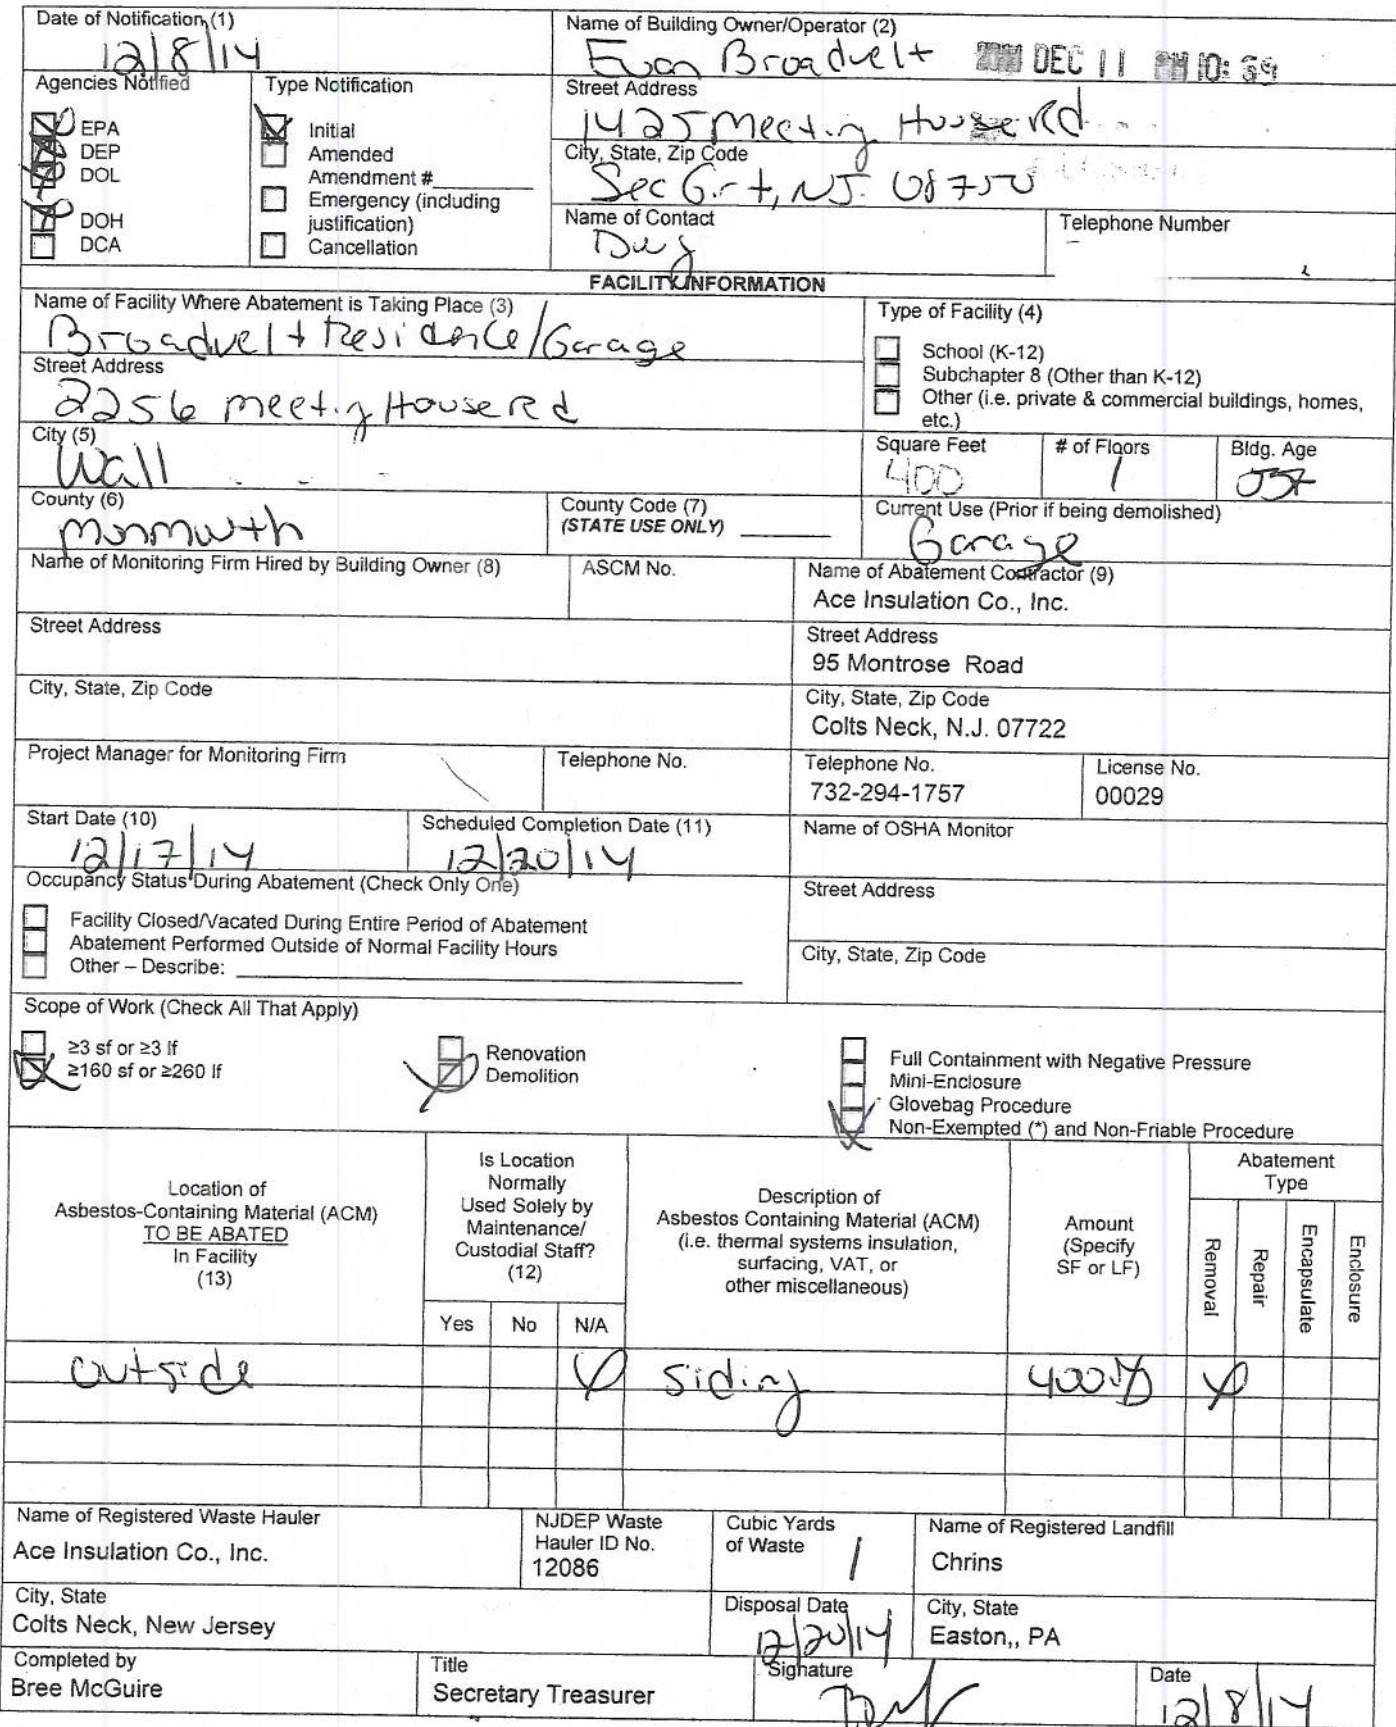 Date of Notification (1)
12/8/14
Name of Building Owner/Operator (2)
Evan Broadvelt
DEC 11 10: 59
Agencies Notified
EPA
DEP
DOL
DOH
DCA
Type Notification
Initial
Amended
Amendment #
Emergency (including
justification)
Cancellation
Street Address
1425 Meeting House Rd
City, State, Zip Code
Sea Girt, NJ. 08750
Name of Contact
Telephone Number
FACILITY INFORMATION
Name of Facility Where Abatement is Taking Place (3)
Broadvelt Residence/Garage
Street Address
2256 meeting House Rd
City (5)
Wall
County (6)
Monmouth
County Code (7)
(STATE USE ONLY)
Type of Facility (4)
School (K-12)
Subchapter 8 (Other than K-12)
Other (i.e. private & commercial buildings, homes,
etc.)
Square Feet
400
# of Floors
1
Bldg. Age
Current Use (Prior if being demolished)
Garage
Name of Monitoring Firm Hired by Building Owner (8)
ASCM No.
Name of Abatement Contractor (9)
Ace Insulation Co., Inc.
Street Address
Street Address
95 Montrose Road
City, State, Zip Code
City, State, Zip Code
Colts Neck, N.J. 07722
Project Manager for Monitoring Firm
Telephone No.
Telephone No.
732-294-1757
License No.
00029
Start Date (10)
12/17/14
Scheduled Completion Date (11)
12/20/14
Name of OSHA Monitor
Occupancy Status During Abatement (Check Only One)
Facility Closed/Vacated During Entire Period of Abatement
Abatement Performed Outside of Normal Facility Hours
Other – Describe:
Street Address
City, State, Zip Code
Scope of Work (Check All That Apply)
≥3 sf or ≥3 lf
≥160 sf or ≥260 lf
Renovation
Demolition
Full Containment with Negative Pressure
Mini-Enclosure
Glovebag Procedure
Non-Exempted (*) and Non-Friable Procedure
Location of
Asbestos-Containing Material (ACM)
TO BE ABATED
In Facility
(13)
Is Location
Normally
Used Solely by
Maintenance/
Custodial Staff?
(12)
Yes No N/A
Description of
Asbestos Containing Material (ACM)
(i.e. thermal systems insulation,
surfacing, VAT, or
other miscellaneous)
Amount
(Specify
SF or LF)
Abatement
Type
Removal
Repair
Encapsulate
Enclosure
outside siding 400
Name of Registered Waste Hauler
Ace Insulation Co., Inc.
NJDEP Waste
Hauler ID No.
12086
Cubic Yards
of Waste
1
Name of Registered Landfill
Chrins
City, State
Colts Neck, New Jersey
Disposal Date
12/20/14
City, State
Easton,, PA
Completed by
Bree McGuire
Title
Secretary Treasurer
Signature
Date
12/8/14